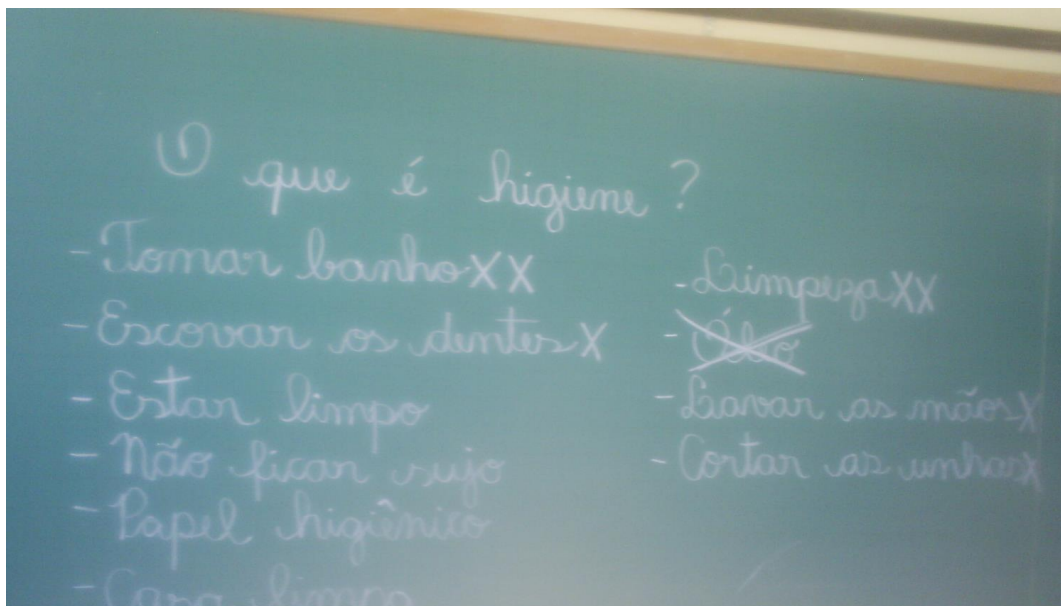 O que é higiene?
- Tomar banho XX
- Escovar os dentes X
- Estar limpo
- Não ficar sujo
- Papel higiênico
- Casa limpa
- Limpeza XX
- Lavar as mãos X
- Cortar as unhas X